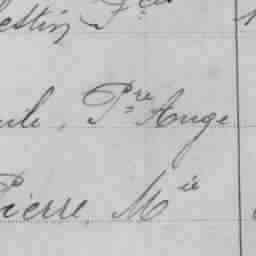 estin Fçois
ule, Pre Ange
Pierre Mie